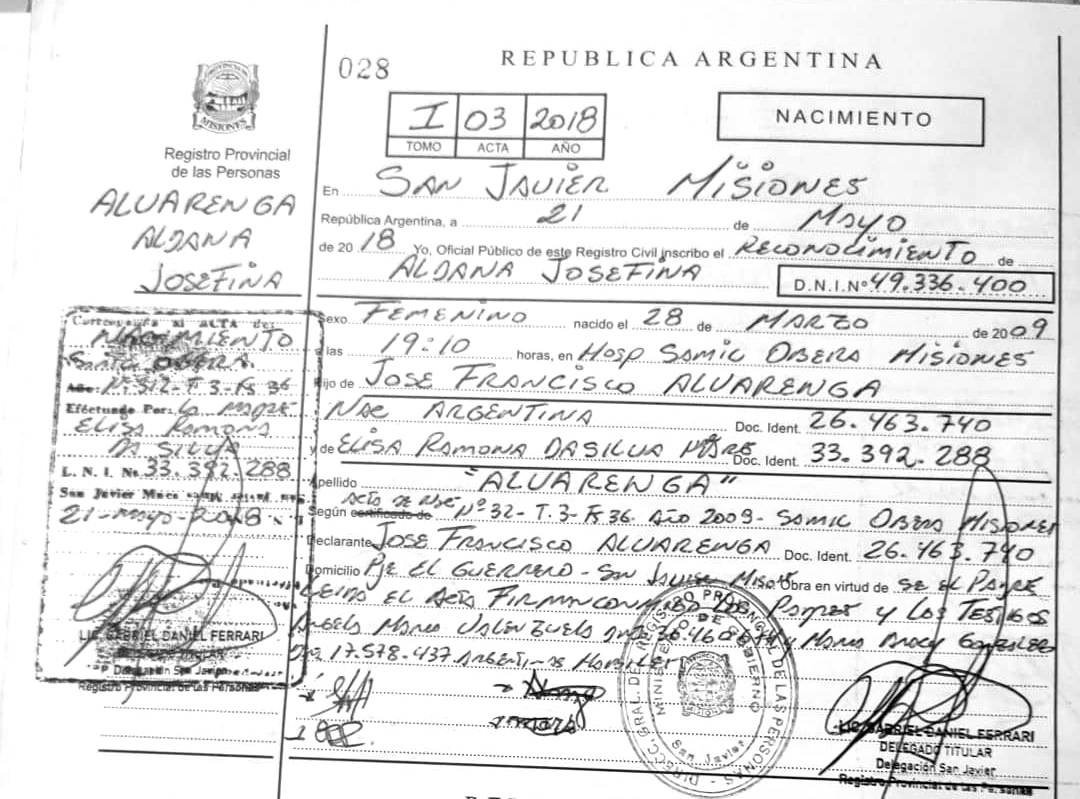 028
REPUBLICA ARGENTINA
PROVINCIA DE
MISIONES
Registro Provincial
de las Personas
ALVARENGA
ALDANA
JOSEFINA
I 03 2018
TOMO ACTA AÑO
NACIMIENTO
En SAN JAVIER MISIONES
República Argentina, a 21 de MAYO
de 2018 Yo, Oficial Público de este Registro Civil inscribo el RECONOCIMIENTO de
ALDANA JOSEFINA D.N.I.Nº 49.336.400
Sexo FEMENINO nacido el 28 de MARZO de 2009
a las 19:10 horas, en HOSP SAMIC OBERA MISIONES
Hijo de JOSE FRANCISCO ALVARENGA
NAC ARGENTINA Doc. Ident. 26.463.740
y de ELISA RAMONA DASILVA Doc. Ident. 33.392.288
Apellido "ALVARENGA"
Según certificado de Nº 32- T.3- Fs 36. AÑO 2009- SAMIC OBERA MISIONES
Declarante JOSE FRANCISCO ALVARENGA Doc. Ident. 26.463.740
Domicilio PJE EL GUERRERO - SAN JAVIER Obra en virtud de SE EL PADRE
LEIDA EL ACTA FIRMAN Y LOS TESTIGOS
17.578.437
Corresponde al ACTA de:
NACIMIENTO
SAMIC OBERA
Efectuado Por: LA MADRE
ELISA RAMONA
DA SILVA
L. N. I. No. 33.392.288
San Javier Mnes
21-MAYO-2018
LIC. GABRIEL DANIEL FERRARI
DELEGADO TITULAR
Delegación San Javier
Registro Provincial de las Personas
DIRECC. GRAL. DEL REGISTRO PROVINCIAL DE LAS PERSONAS
MINISTERIO DE GOBIERNO
San Javier
LIC. GABRIEL DANIEL FERRARI
DELEGADO TITULAR
Delegación San Javier
Registro Provincial de las Personas